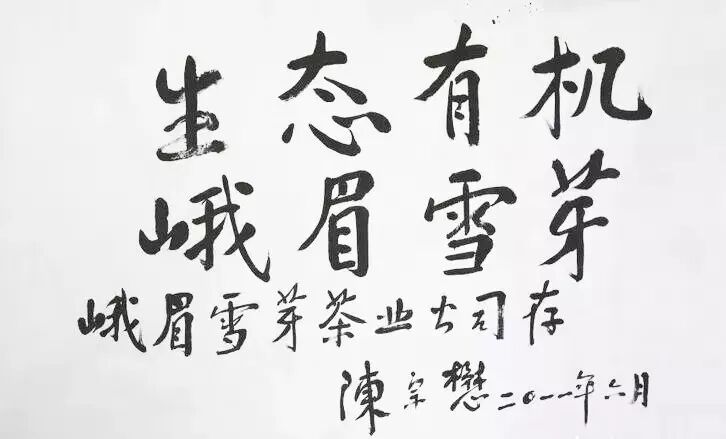 生态有机
峨眉雪芽
峨眉雪芽茶业公司存
陳宗懋二〇一一年六月